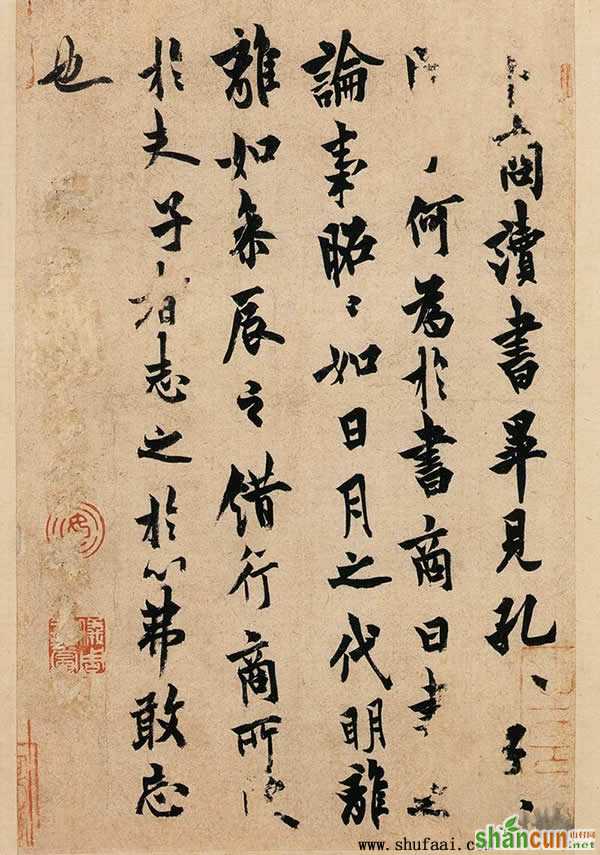 卜商讀書畢見孔〻子〻
問何為於書商曰書之
論事昭〻如日月之代明離
離如參辰之錯行商所受
於夫子者志之於心弗敢忘
也
www.shufaai.com
shancun
山村网
.net